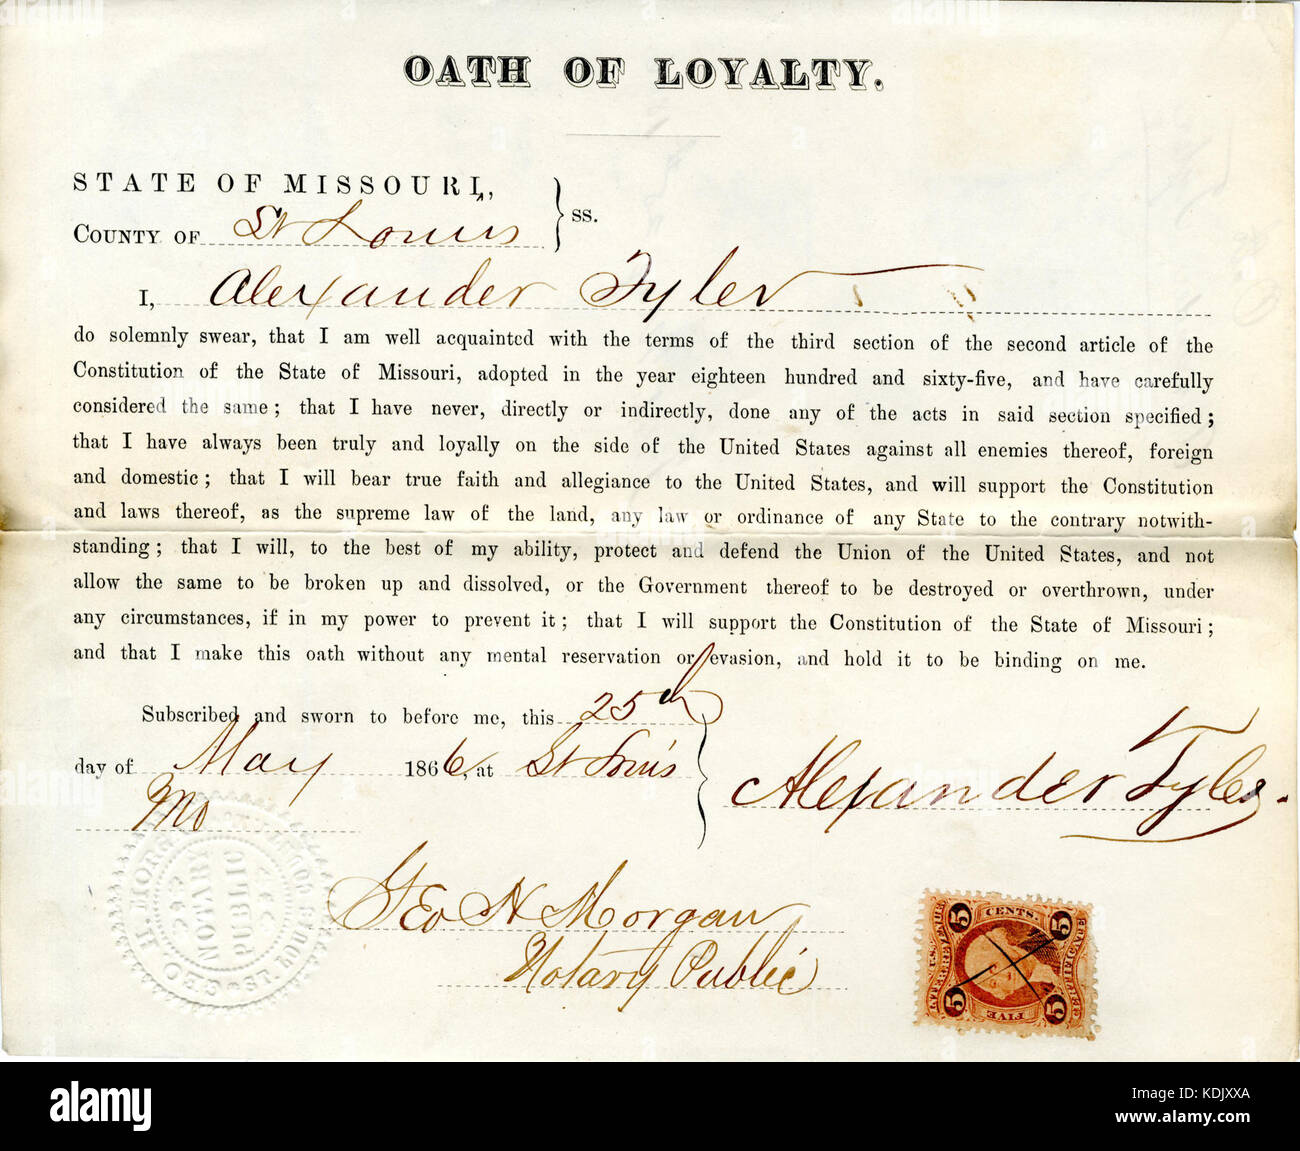 OATH OF LOYALTY.
STATE OF MISSOURI,
COUNTY OF St Louis
ss.
I, Alexander Tyler
do solemnly swear, that I am well acquainted with the terms of the third section of the second article of the
Constitution of the State of Missouri, adopted in the year eighteen hundred and sixty-five, and have carefully
considered the same; that I have never, directly or indirectly, done any of the acts in said section specified;
that I have always been truly and loyally on the side of the United States against all enemies thereof, foreign
and domestic; that I will bear true faith and allegiance to the United States, and will support the Constitution
and laws thereof, as the supreme law of the land, any law or ordinance of any State to the contrary notwith-
standing; that I will, to the best of my ability, protect and defend the Union of the United States, and not
allow the same to be broken up and dissolved, or the Government thereof to be destroyed or overthrown, under
any circumstances, if in my power to prevent it; that I will support the Constitution of the State of Missouri;
and that I make this oath without any mental reservation or evasion, and hold it to be binding on me.
Subscribed and sworn to before me, this 25th
day of May 1866, at St Louis
Mo
Alexander Tyler.
Geo H Morgan
Notary Public
GEO H. MORGAN
NOTARY
PUBLIC
ST. LOUIS
5 CENTS. 5
U.S. INTER. REVENUE
CERTIFICATE
5 FIVE 5
alamy
Image ID: KDJXXA
www.alamy.com